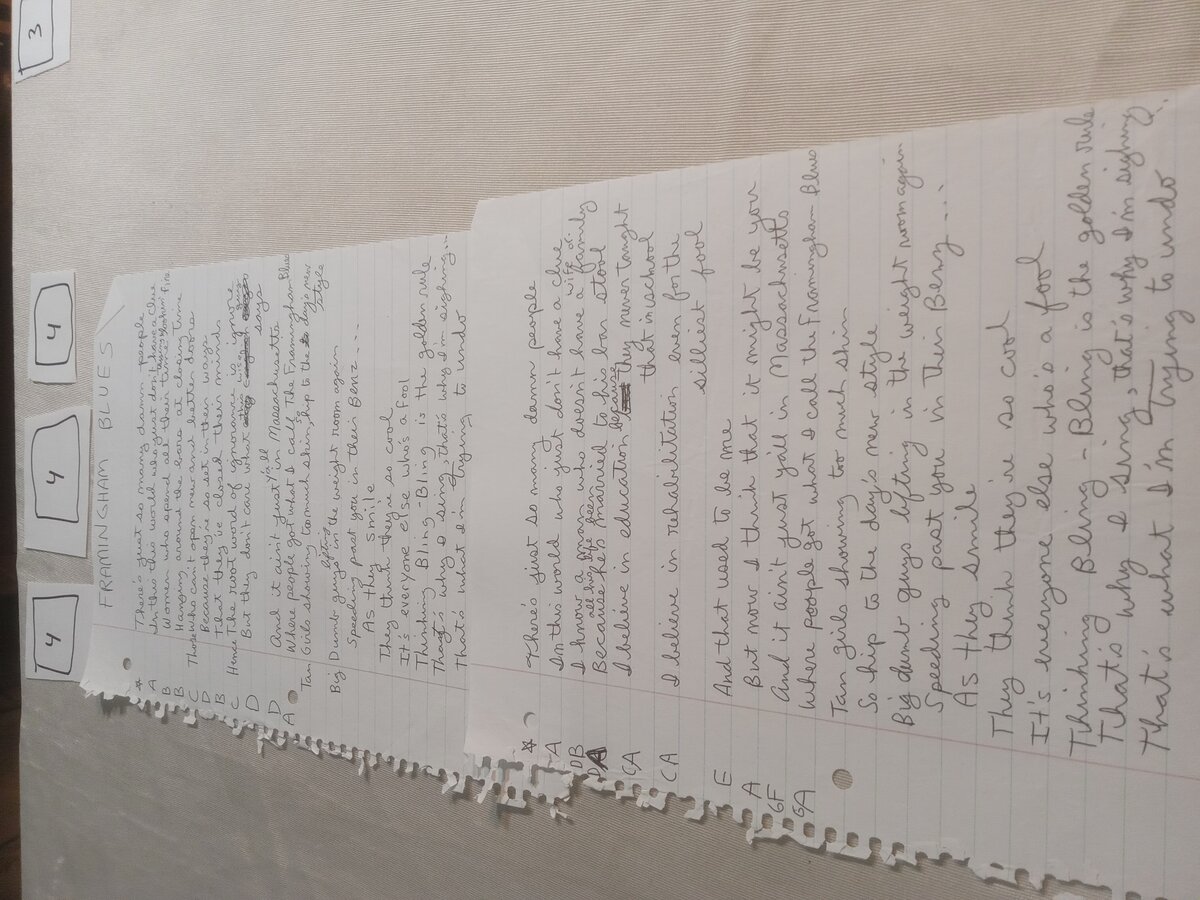 3
4
4
4
FRAMINGHAM BLUES
* There's just so many damn people
A In this world who just don't have a clue
B Women who spend all their time
B Hanging around the bars at closing time
C Those who can't open new and better doors
D Because they're so set in their ways
B That they've closed their minds
C Hence The root word of ignorance is ignore
D But they don't care what this wise guy says
D And it ain't just y'all in Massachusetts
A Where people got what I call The Framingham Blues
Tan Girls showing too much skin, so hip to the day's new style
Big Dumb guys lifting in the weight room again
Speeding past you in their Benz....
As they smile
They think they're so cool
It's everyone else who's a fool
Thinking Bling-Bling is the golden rule
That's why I sing, that's why I'm sighing...
That's what I'm trying to undo
* There's just so many damn people
A In this world who just don't have a clue
DB I know a man who doesn't have a wife or family
DA Because all his life he's been married to his bar stool
CA I believe in education because they never taught
that in school
CA I believe in rehabilitation even for the
silliest fool
E And that used to be me
A But now I think that it might be you
GF And it ain't just y'all in Massachusetts
GA Where people got what I call the Framingham Blues
Tan girls showing too much skin
So hip to the day's new style
Big dumb guys lifting in the weight room again
Speeding past you in their Benz...
As they smile
They think they're so cool
It's everyone else who's a fool
Thinking Bling-Bling is the golden rule
That's why I sing, that's why I'm sighing...
That's what I'm trying to undo